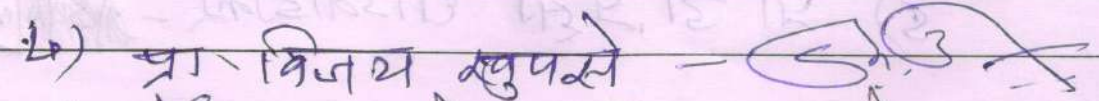 ५) प्रा. विजय खुपसे -